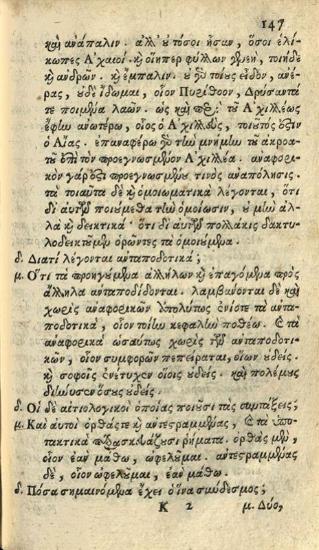 147
καὶ ἀνάπαλιν. ἀλλ' οὗτοι ἦσαν, ὅσοι ἑλί-
κωπες Ἀχαιοί. καὶ οἵηπερ φύλλων γενεὴ, τοιήδε
καὶ ἀνδρῶν. καὶ ἔμπαλιν. οὐ γὰρ τοίους εἶδον, ἀνέ-
ρας, οὐδὲ ἴδωμαι, οἷον Πυρίθοον, Δρύαντά
τε ποιμένα λαῶν. ὡς καὶ περὶ τοῦ Ἀχιλλέως
ἔφην ἀνωτέρω, οἷος ὁ Ἀχιλλεὺς, τοιοῦτός ἐστιν
ὁ Αἴας. ἐπαναφέρω γὰρ τὴν μνήμην τοῦ ἀκροα-
τοῦ ἐπὶ τὸν προεγνωσμένον Ἀχιλλέα. ἀναφορι-
κὸν γάρ ἐστι προεγνωσμένου τινὸς ἀναπόλησις.
τὰ τοιαῦτα δὲ καὶ ὁμοιωματικὰ λέγονται, ὅτι
δι' αὐτῶν ποιούμεθα τὴν ὁμοίωσιν, οὐ μὴν ἀλ-
λὰ καὶ δεικτικά· ὅτι δι' αὐτῶν πολλάκις δακτυ-
λοδεικτοῦμεν ὁρῶντες τὰ ὁμοιούμενα.
δ. Διατί λέγονται ἀνταποδοτικά;
μ. Ὅτι τὰ προηγούμενα ἀλλήλων καὶ ἐπαγόμενα πρὸς
ἄλληλα ἀνταποδίδονται. λαμβάνονται δὲ καὶ
χωρὶς ἀναφορικῶν ὑπολύπως ἐνίοτε τὰ ἀνταποδοτικὰ, οἷον τοίην κεφαλὴν ποθέω. καὶ τὰ
ἀναφορικὰ ὡσαύτως χωρὶς τῶν ἀνταποδοτι-
κῶν, οἷον συμφορῶν πεπείραται, οἵων οὐδείς.
καὶ σοφοῖς ἐνέτυχεν οἵοις οὐδείς. καὶ πολέμους
οὐδείς.
δ. Οἱ δὲ αἰτιολογικοὶ ὁποίας ποιοῦσι τὰς συντάξεις;
μ. Καὶ αὐτοὶ ὀρθάς τε καὶ ἀντεστραμμένας, καὶ τὰ ὑπο-
τακτικὰ ῥήματα. ὀρθὰς μὲν,
οἷον ἐὰν μάθω, ὠφελοῦμαι. ἀντεστραμμένας
δὲ, οἷον ὠφελοῦμαι, ἐὰν μάθω.
δ. Πόσα σημαινόμενα ἔχει ὁ ἵνα σύνδεσμος;
K 2 μ. Δύο,